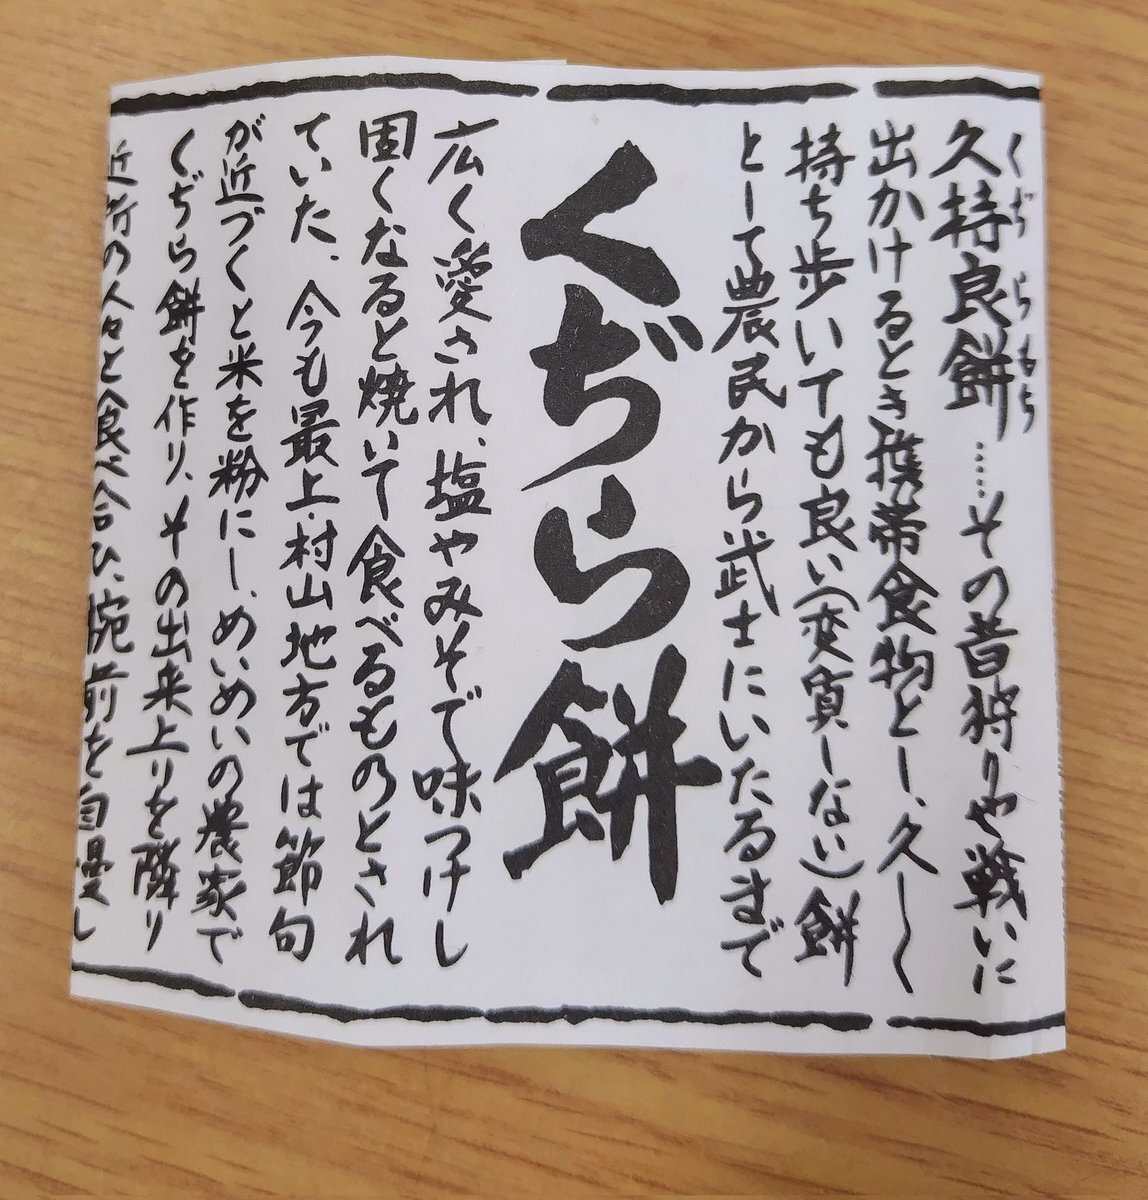 久持良餅……その昔狩りや戦いに
くぢらもち
出かけるとき携帯食物とし、久しく
持ち歩いても良い(変質しない)餅
として農民から武士にいたるまで
くぢら餅
広く愛され、塩やみそで味つけし
固くなると焼いて食べるものとされ
ていた、今も最上・村山地方では節句
が近づくと米を粉にし、めいめいの農家で
くぢら餅を作り、その出来上りを隣り
近所の人々と食べ合ひ、腕前を自慢し